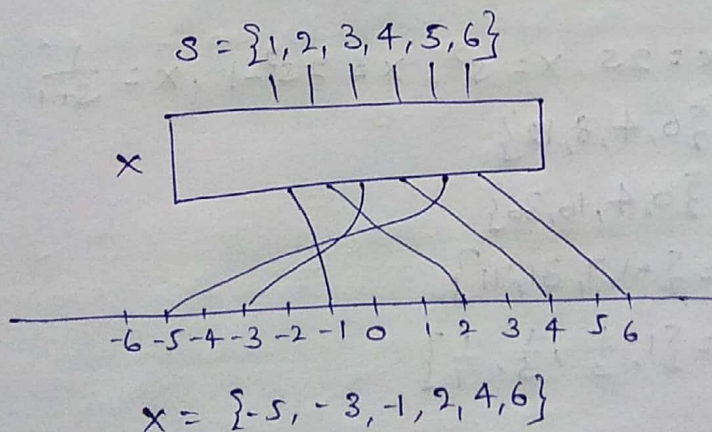 S = {1, 2, 3, 4, 5, 6}
X
-6 -5 -4 -3 -2 -1 0 1 2 3 4 5 6
X = {-5, -3, -1, 2, 4, 6}